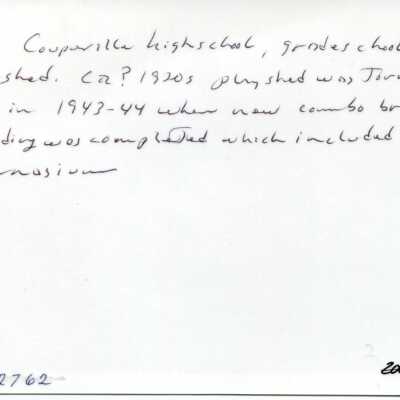 Coupeville highschool, gradeschool
shed. Ca? 1920s playshed was Tor
in 1943-44 when new combo b
ding was completed which included
nasium
2762
200